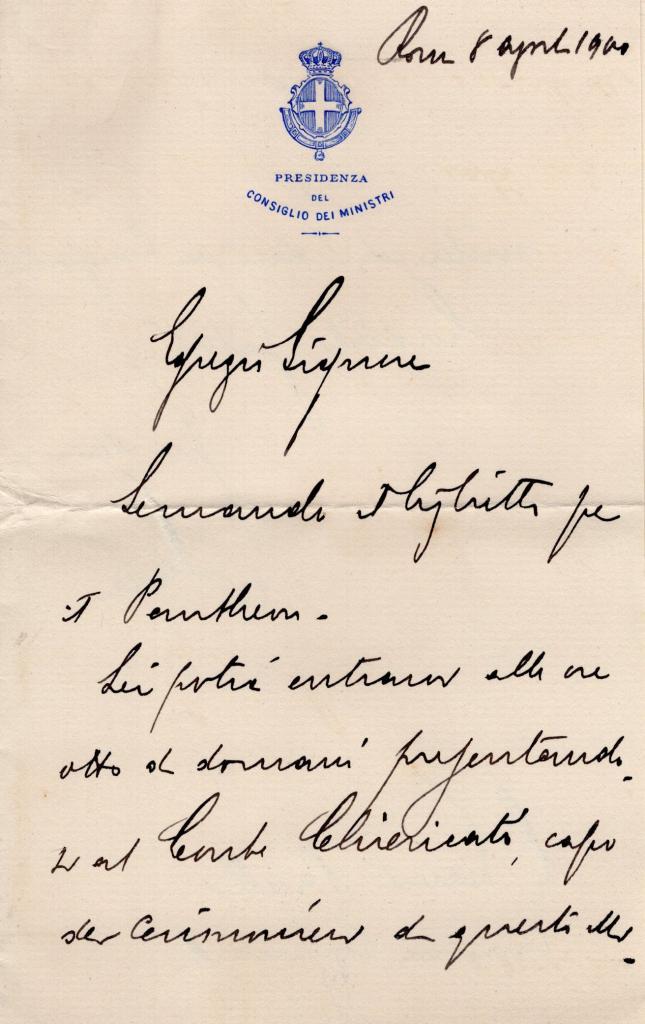 Roma 8 aprile 1900
PRESIDENZA
DEL
CONSIGLIO DEI MINISTRI
Egregio Signore
Le mando il biglietto per
il Pantheon.
Lei potrà entrarvi alle ore
otto di domani presentando-
si al Conte
capo
dei Cerimonieri di questo